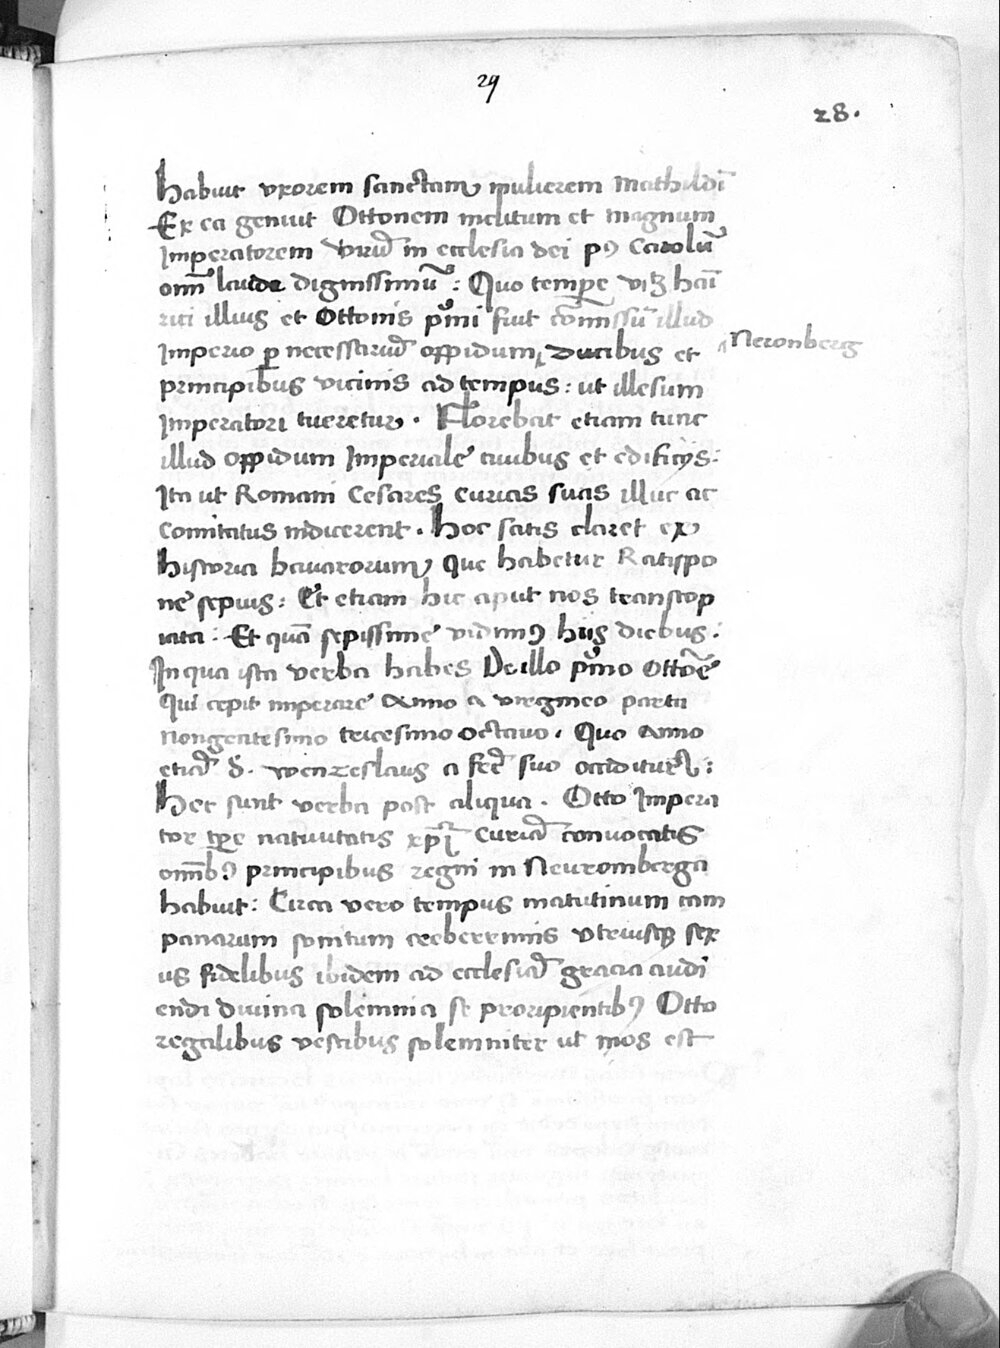 29
28.
habuit uxorem sanctam mulierem Mathildī
Ex ea genuit Ottonem inclitum et magnum
Imperatorem Virū in ecclesia dei pꝰ Carolū
om̄i laude dignissimū : Quo tempore viꝫ hai
rici illius et Ottonis pͥmi fuit cōmissū illud
Imperio ꝑ necessariū oppidum ducibus et
Neronberg
principibus vicinis ad tempus : ut illesum
Imperatori tueretur . Florebat etiam tunc
illud oppidum Imperiale civibus et edificijs :
Ita ut Romani Cesares curias suas illuc ac
comitatus indicerent . Hoc satis claret ex
historia bavarorum Que habetur Ratispo
ne sepius : Et etiam hic aput nos transcop
iata : Et quā sepissime vidimꝰ hiis diebus :
In qua ista verba habes De illo pͥmo Ottōe
Qui cepit imperare Anno a virgineo partu
nongentesimo tricesimo octavo . Quo Anno
etiā S. wenzeslaus a frē suo occiditur :
Hec sunt verba post aliqua . Otto Impera
tor tꝑe nativitatis xp̄i Curiā convocatis
om̄ibꝰ principibus regni in Neuromberga
habuit : Circa vero tempus matutinum cam
panarum sonitum creberrimis utriusqꝫ sex
us fidelibus ibidem ad ecclesiā gracia audi
endi divina solemnia se proripientibꝰ Otto
regalibus vestibus solemniter ut mos est